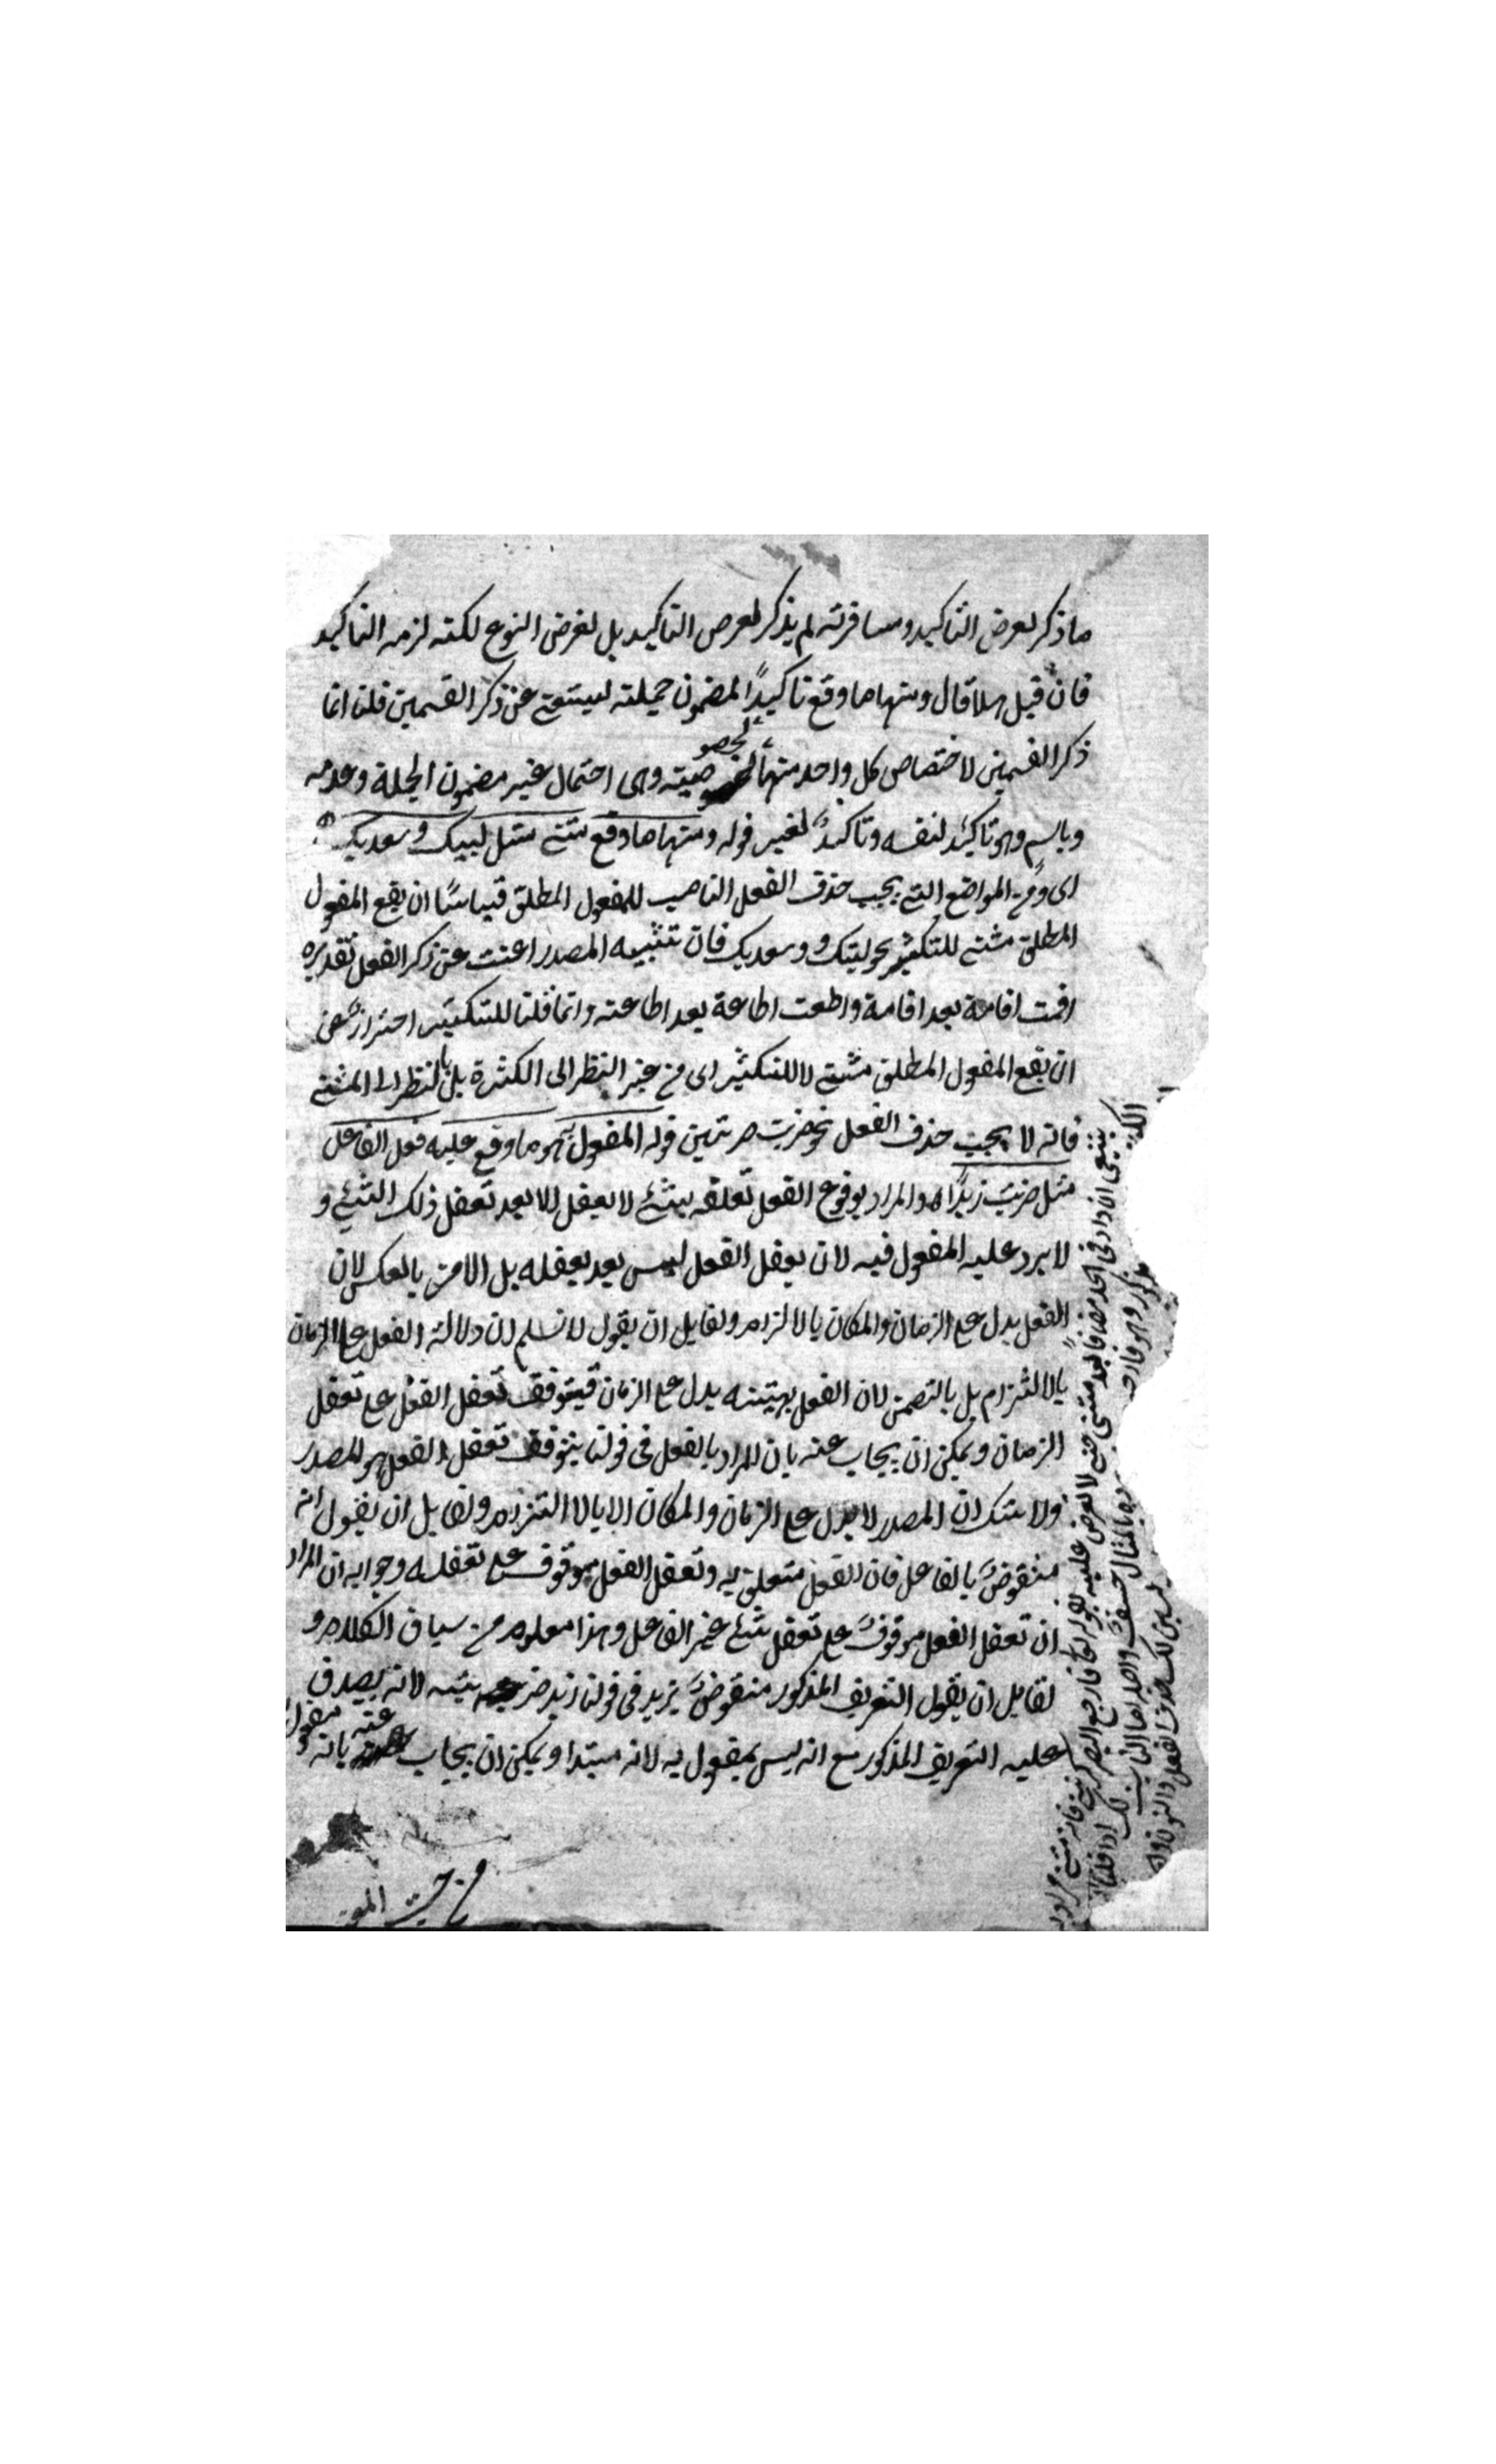 ما ذكر لغرض التاكيد ومسافرته لم يذكر لغرض التاكيد بل لغرض النوع لكنه لزمه التاكيد
فان قيل هلا قال ومنها ما وقع تاكيدًا لمضمون جملته ليستغنى عن ذكر القسمين قلنا انما
ذكر القسمين لاختصاص كل واحد منهما لخصوصيته وهى احتمال غير مضمون الجملة وعدمه
وباسم وهو تاكيد لنفسه وتاكيد لغيره قوله ومنها ما وقع مثنى مثل لبيك وسعديك
اى ومن المواضع التى يجب حذف الفعل الناصب للمفعول المطلق قياسًا ان يقع المفعول
المطلق مثنى للتكثير نحو لبيك وسعديك فان تثنيه المصدر اغنت عن ذكر الفعل تقديره
اقمت اقامة بعد اقامة واطعت اطاعة بعد اطاعته وانما قلنا للتكثير احتراز عن
ان يقع المفعول المطلق مثنى لا للتكثير اى من غير النظر الى الكثرة بل بالنظر الى المثنى
فانه لا يجب حذف الفعل نحو ضربت ضربتين قوله المفعول به هو ما وقع عليه فعل الفاعل
مثل ضربت زيدًا والمراد بوقوع الفعل تعلقه بشئ لا يعقل الا بعد تعقل ذلك الشئ و
لا يرد عليه المفعول فيه لان يعقل الفعل ليس بعد يعقله بل الامر بالعكس لان
الفعل يدل على الزمان والمكان بالالزام ولقايل ان يقول لا نسلم ان دلالة الفعل على الزمان
بالالتزام بل بالتضمن لان الفعل بهيئته يدل على الزمان فيتوقف تعقل الفعل على تعقل
الزمان ويمكن ان يجاب عنه بان المراد بالفعل فى قولنا يتوقف تعقل الفعل هو المصدر
ولا شك ان المصدر لا يدل على الزمان والمكان الا بالالتزام ولقايل ان يقول انه
منقوض بالفاعل فان الفعل متعلق به وتعقل الفعل موقوف على تعقله وجوابه ان المراد
ان تعقل الفعل موقوف على تعقل شئ غير الفاعل وهذا معلوم من سياق الكلام و
لقايل ان يقول التعريف المذكور منقوض بزيد فى قولنا زيد ضربته لانه يصدق
عليه التعريف المذكور مع انه ليس بمفعول به لانه مبتدا ويمكن ان يجاب عنه بانه مفعول
من حيث